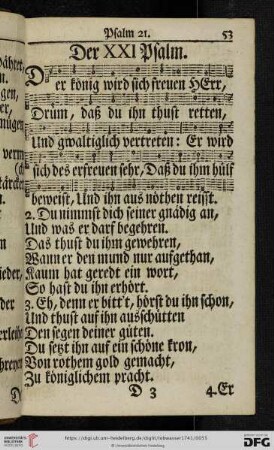 Psalm 21. 53
Der XXI Psalm.
Der könig wird sich freuen HErr,
Drüm, daß du ihn thust retten,
Und gwaltiglich vertreten: Er wird
sich des erfreuen sehr, Daß du ihm hülf
beweist, Und ihn aus nöthen reisst.
2. Du nimmst dich seiner gnädig an,
Und was er darf begehren.
Das thust du ihm gewehren,
Wann er den mund nur aufgethan,
Kaum hat geredt ein wort,
So hast du ihn erhört.
3. Eh, denn er bitt't, hörst du ihn schon,
Und thust auf ihn ausschütten
Den segen deiner güten.
Du setzt ihn auf ein schöne kron,
Von rothem gold gemacht,
Zu königlichem pracht.
D 3 4. Er
http://digi.ub.uni-heidelberg.de/diglit/lobwasser1741/0055
© Universitätsbibliothek Heidelberg
Gefördert durch
DFG